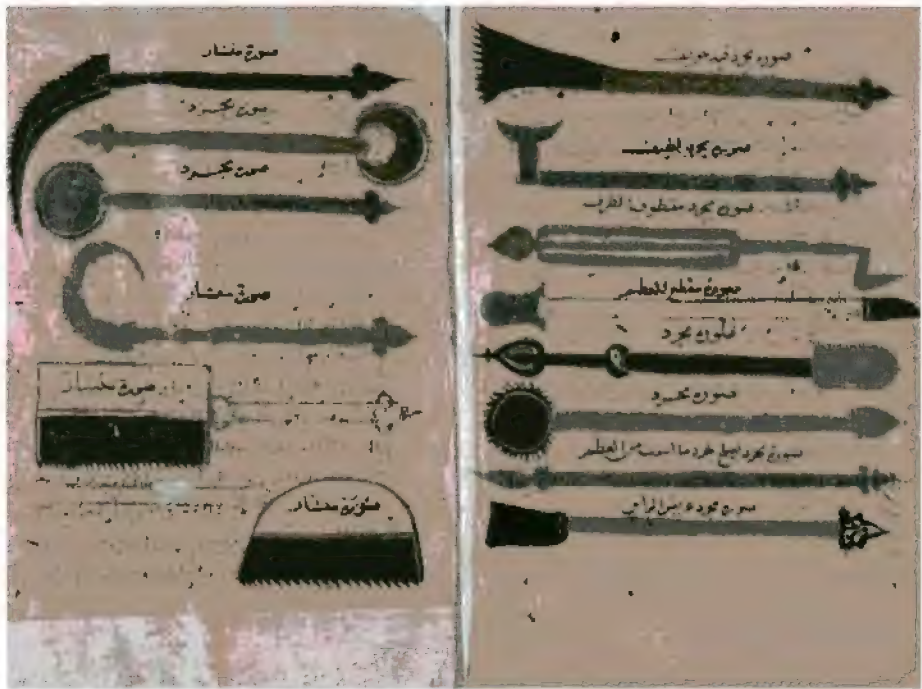 صورة مجرد فيه تجويف
صورة مجرد لطيف
صورة مجرد معطوف الطرف
صورة مقطع العظم
صورة مجرد
صورة مجرد
صورة مجرد يصلح لجرد ما من العظم
صورة مجرد عريض الرأس
صورة منشار
صورة مجرد
صورة مجرد
صورة منشار
صورة منشار
صورة منشار